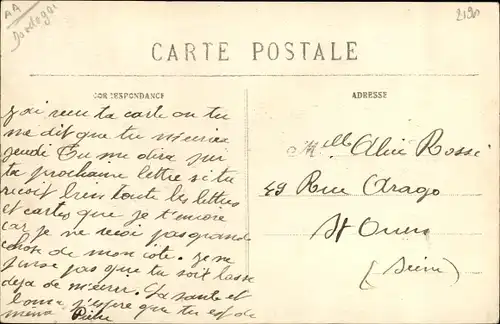 AA
Dordogne
2190
CARTE POSTALE
CORRESPONDANCE
ADRESSE
j'ai recu ta carte ou tu
me dit que tu m'ecrira
jeudi Tu me dira sur
ta prochaine lettre si tu
recoit bien toute les lettres
et cartes que je t'envoie
car je ne recoi pas grand
chose de mon coté. je ne
pense pas que tu soit lasse
deja de m'ecrir. La sante est
bonne j'espere que tu est de
meme
Melle Alice Rossi
49 Rue Arago
St Ouen
(Seine)